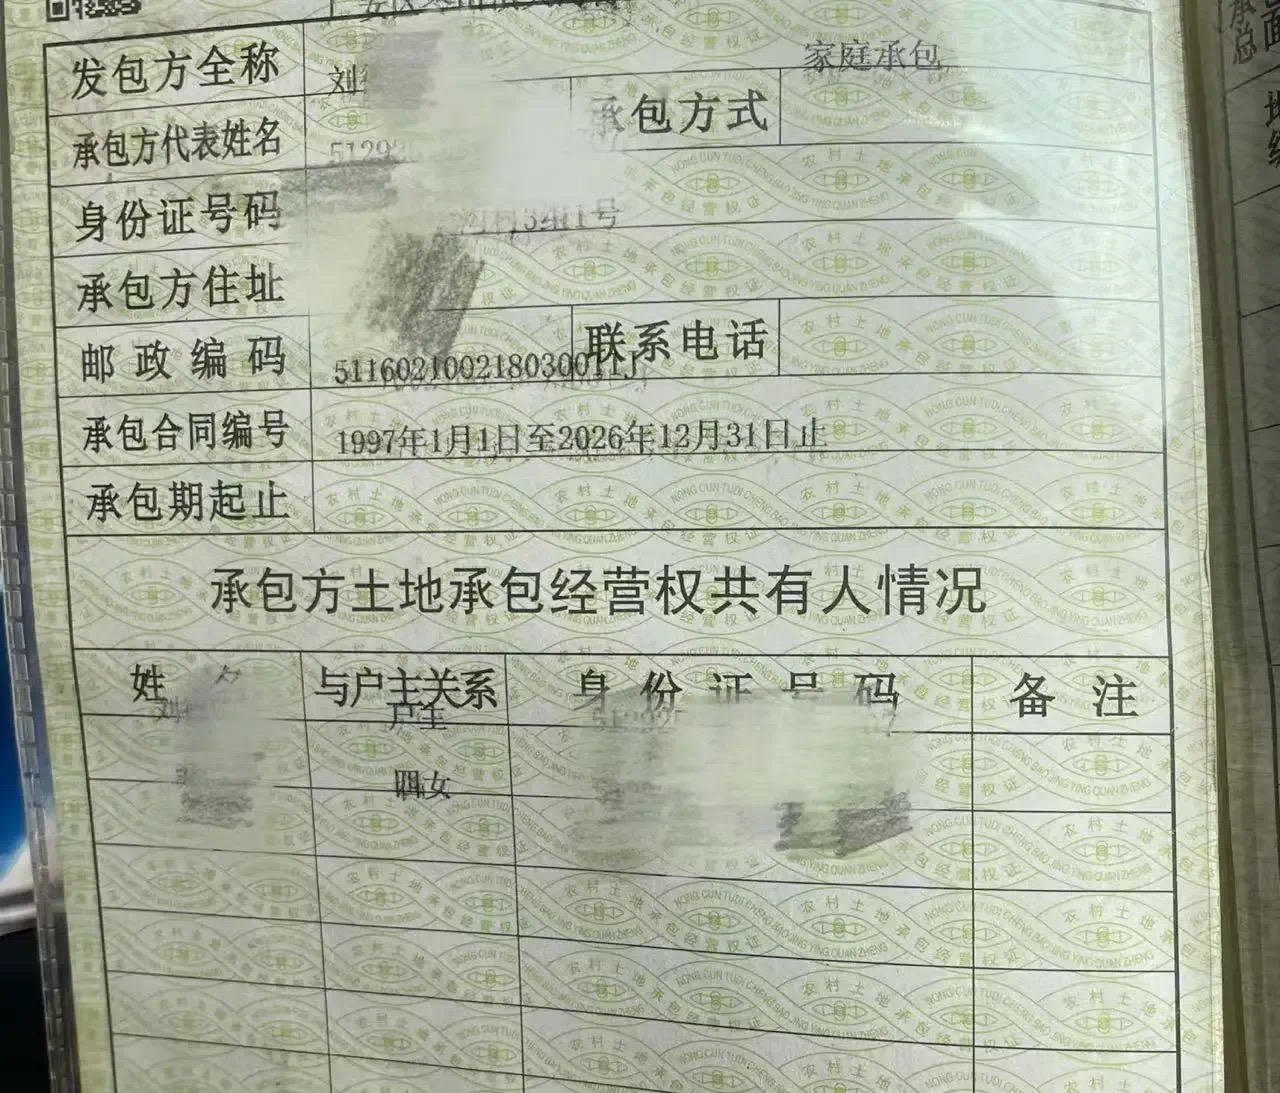 发包方全称
刘
家庭承包
承包方代表姓名
承包方式
51292
身份证号码
村3组1号
承包方住址
邮政编码
联系电话
511602100218030011J
承包合同编号
1997年1月1日至2026年12月31日止
承包期起止
承包方土地承包经营权共有人情况
姓名 与户主关系 身份证号码 备注
刘 户主 51292
四女
农村土地承包经营权证
NONG CUN TUDI CHENG BAO JING YING QUAN ZHENG